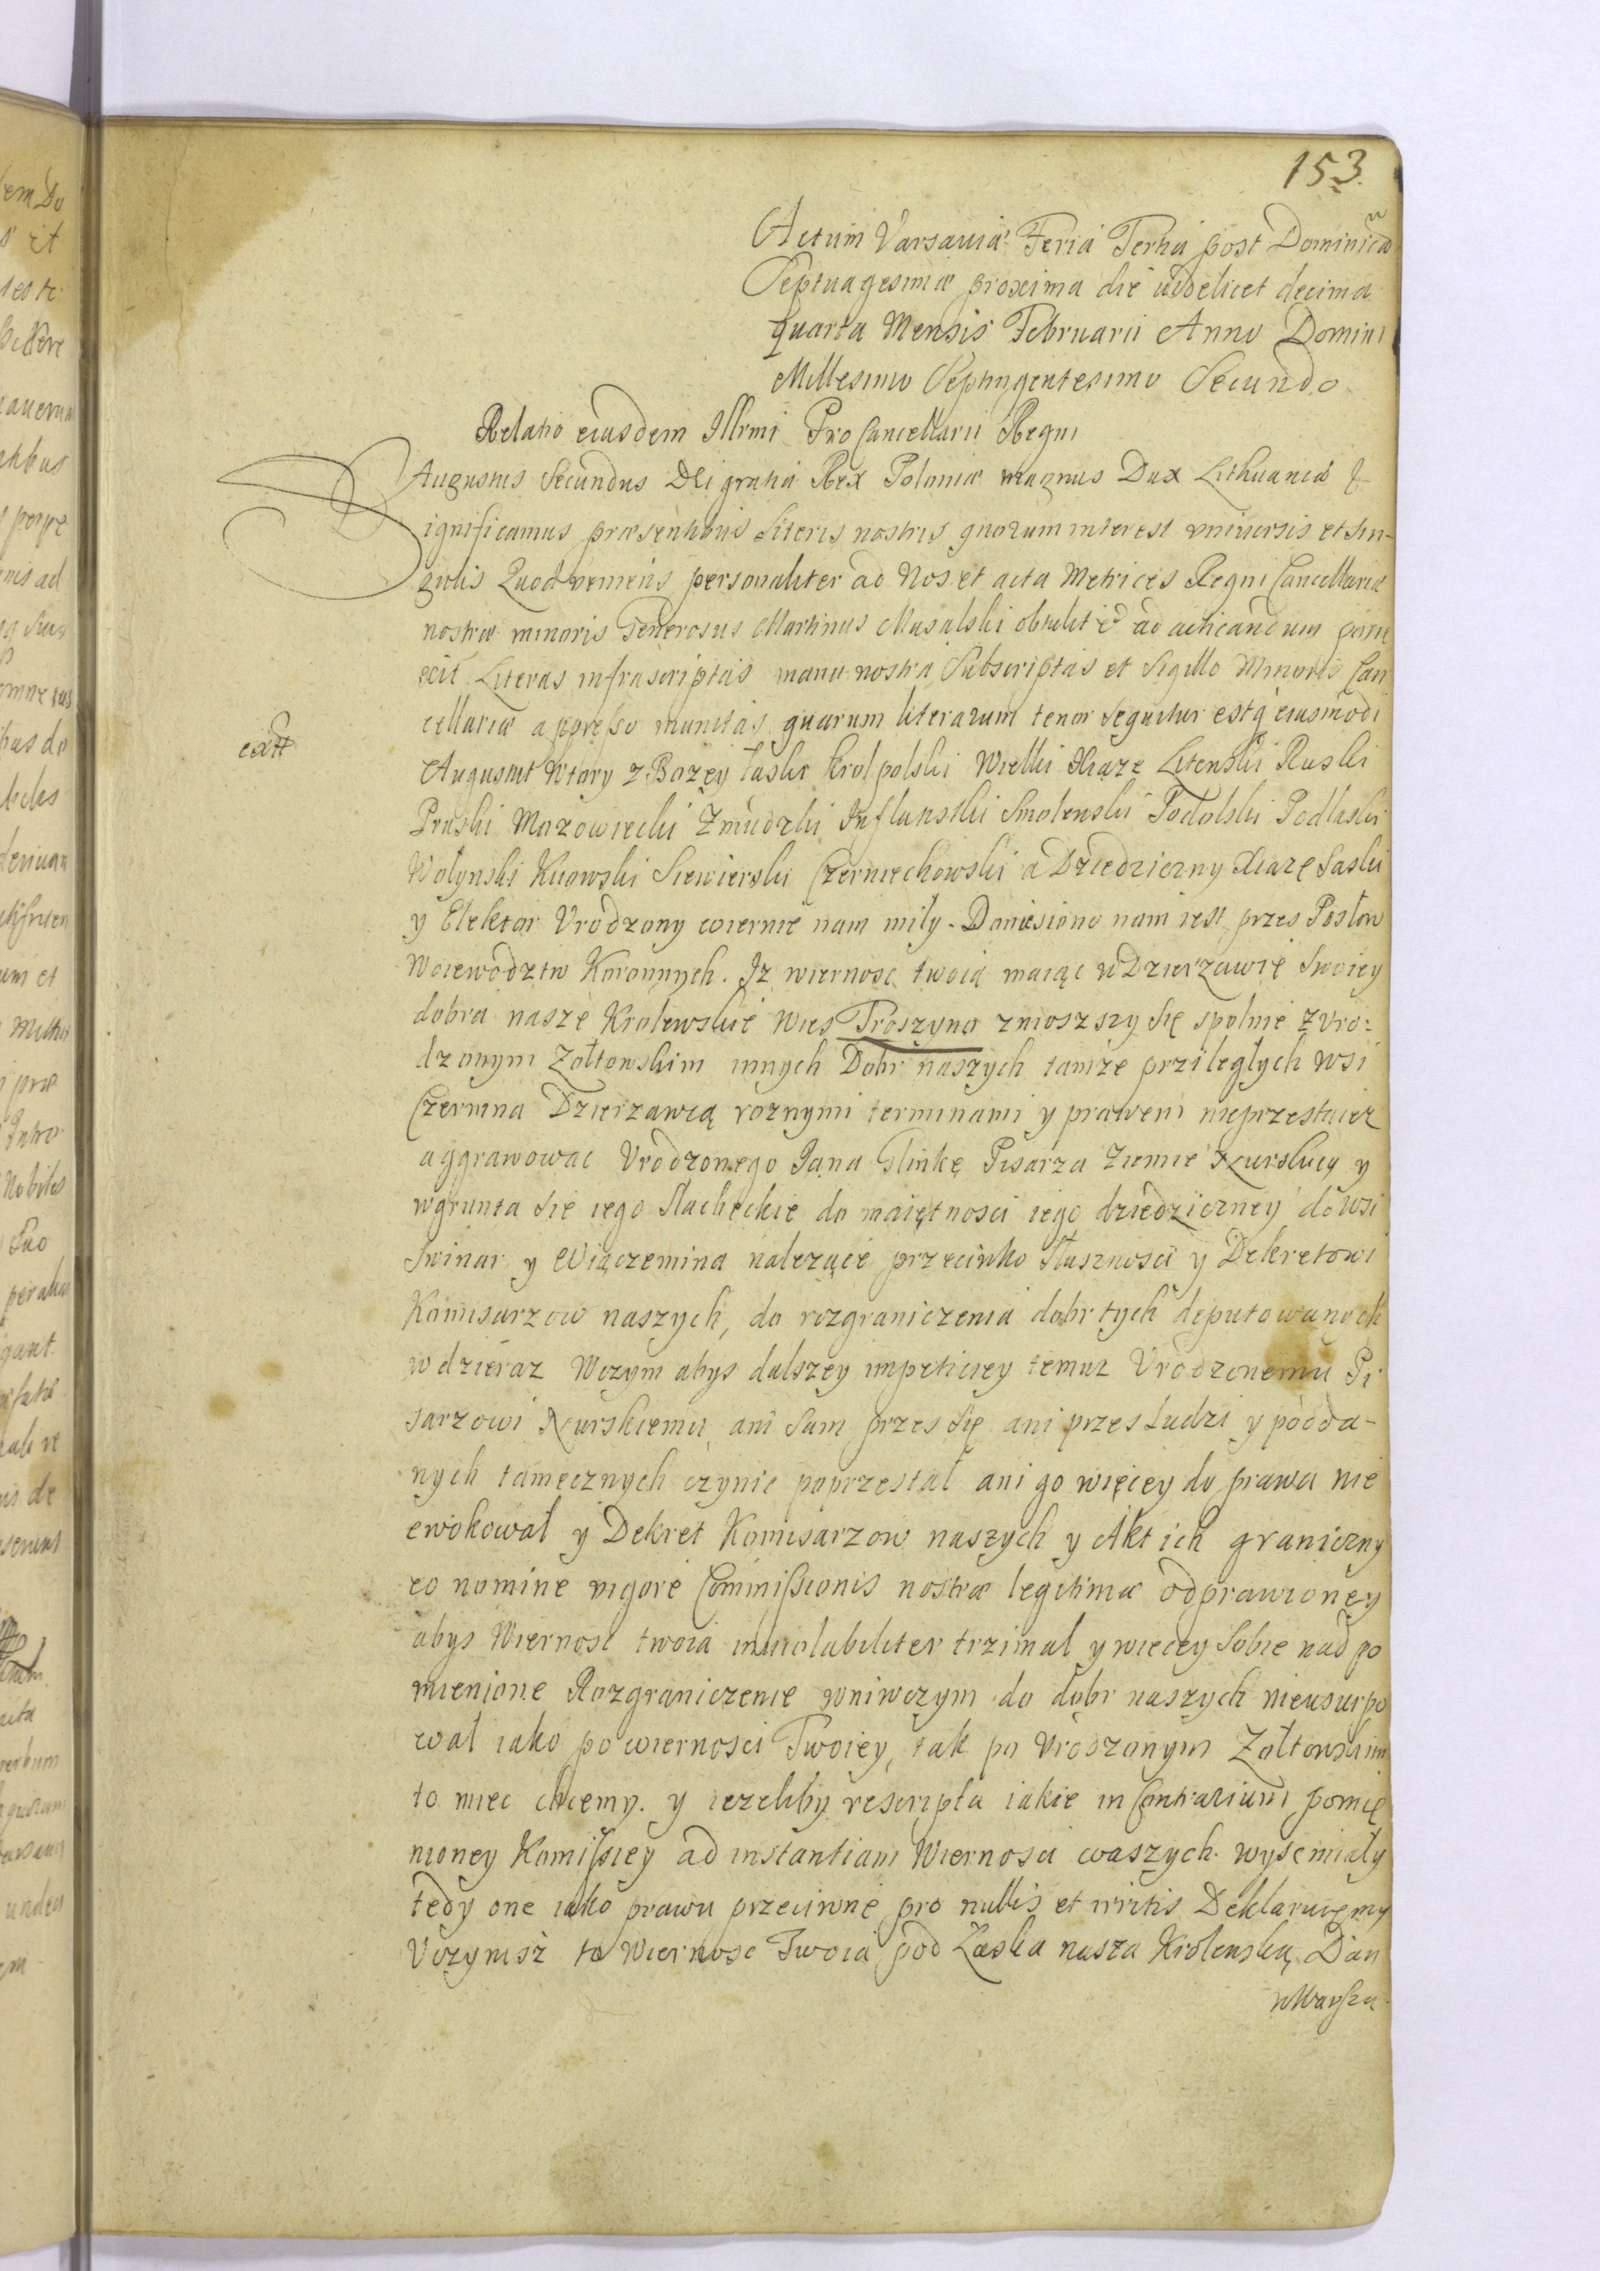 153.
Actum Varsaviæ Feria Tertia post Dominicã
Septuagesimæ proxima die videlicet decima
quarta Mensis Februarii Anno Domini
Millesimo Septingentesimo Secundo
Relatio eiusdem Illrmi ProCancellarii Regni
Augustus Secundus DEi gratia Rex Poloniæ magnus Dux Lithuaniæ &
Significamus præsentibus Literis nostris quorum interest vniuersis et Sin-
gulis Quod veniens personaliter ad Nos et acta Metrices Regni Cancellariæ
nostræ minoris Generosus Martinus Masalski obtulit & ad acticandum porre
xit Literas infrascriptas manu nostra Subscriptas et Sigillo Minoris Can
cellariæ appresso munitas quarum literarum tenor sequitur estq eiusmodi
extt
August Wtory z Bozey łaski Krol polski Wielki Xiąze Litewski Ruski
Pruski Mazowiecki Zmudzki Inflanstki Smolenski Podolski Podlaski
Wołynski Kiiowski Siewierski Czerniechowski a Dziedziczny Xiązę Saski
y Elektor Vrodzony wiernie nam miły. Doniesiono nam iest przes Posłow
Woiewodztw Koronnych. Iz wiernosc twoia maiąc w Dzierzawie Swoiey
dobra nasze Krolewskie wies Proszyna zniosszy Się spolnie z Vro-
dzonym Zołtowskim innych Dobr naszych tamze przileglych wsi
Czernina Dzierzawcą roznymi terminami y prawem nieprzestaiesz
aggrawowac Vrodzonego Jana Glinkę Pisarza Ziemie Nurskiey y
wgrunta Sie iego Slacheckie do maiętnosci iego dziedziczney do wsi
Swinar y Wiączemina nalezące przeciwko Słusznosci y Dekretowi
Komisarzow naszych, do rozgraniczenia dobr tych deputowanych
wdzieraz Wczym abys dalszey impetiiey temuz Vrodzonemu Pi
sarzowi Nurskiemu ani Sam przes Się ani przes Ludzi y podda-
nych tamecznych czynic poprzestał ani go więcey do prawa nie
ewokował y Dekret Komisarzow naszych y Akt ich graniczny
eo nomine vigore Commissionis nostræ legitimæ odprawioney
abys Wiernosc twoia inuiolabiliter trzimał y wiecey Sobie nad po
mienione Rozgraniczenie wniwczym do dobr naszych nieusurpo
wał iako po wiernosci Twoiey, tak po Vrodzonym Zołtowskim
to miec chcemy. y iezeliby rescripta iakie in Contrarium pomię
nioney Komissiey ad instantiam Wiernosci waszych wyscmiały
tedy one iako prawu przeciwne pro nullis et irritis Deklaruięmy
Vczynisz to Wiernosc Twoia pod Łaska nasza Krolewską Dan
wWarsza-